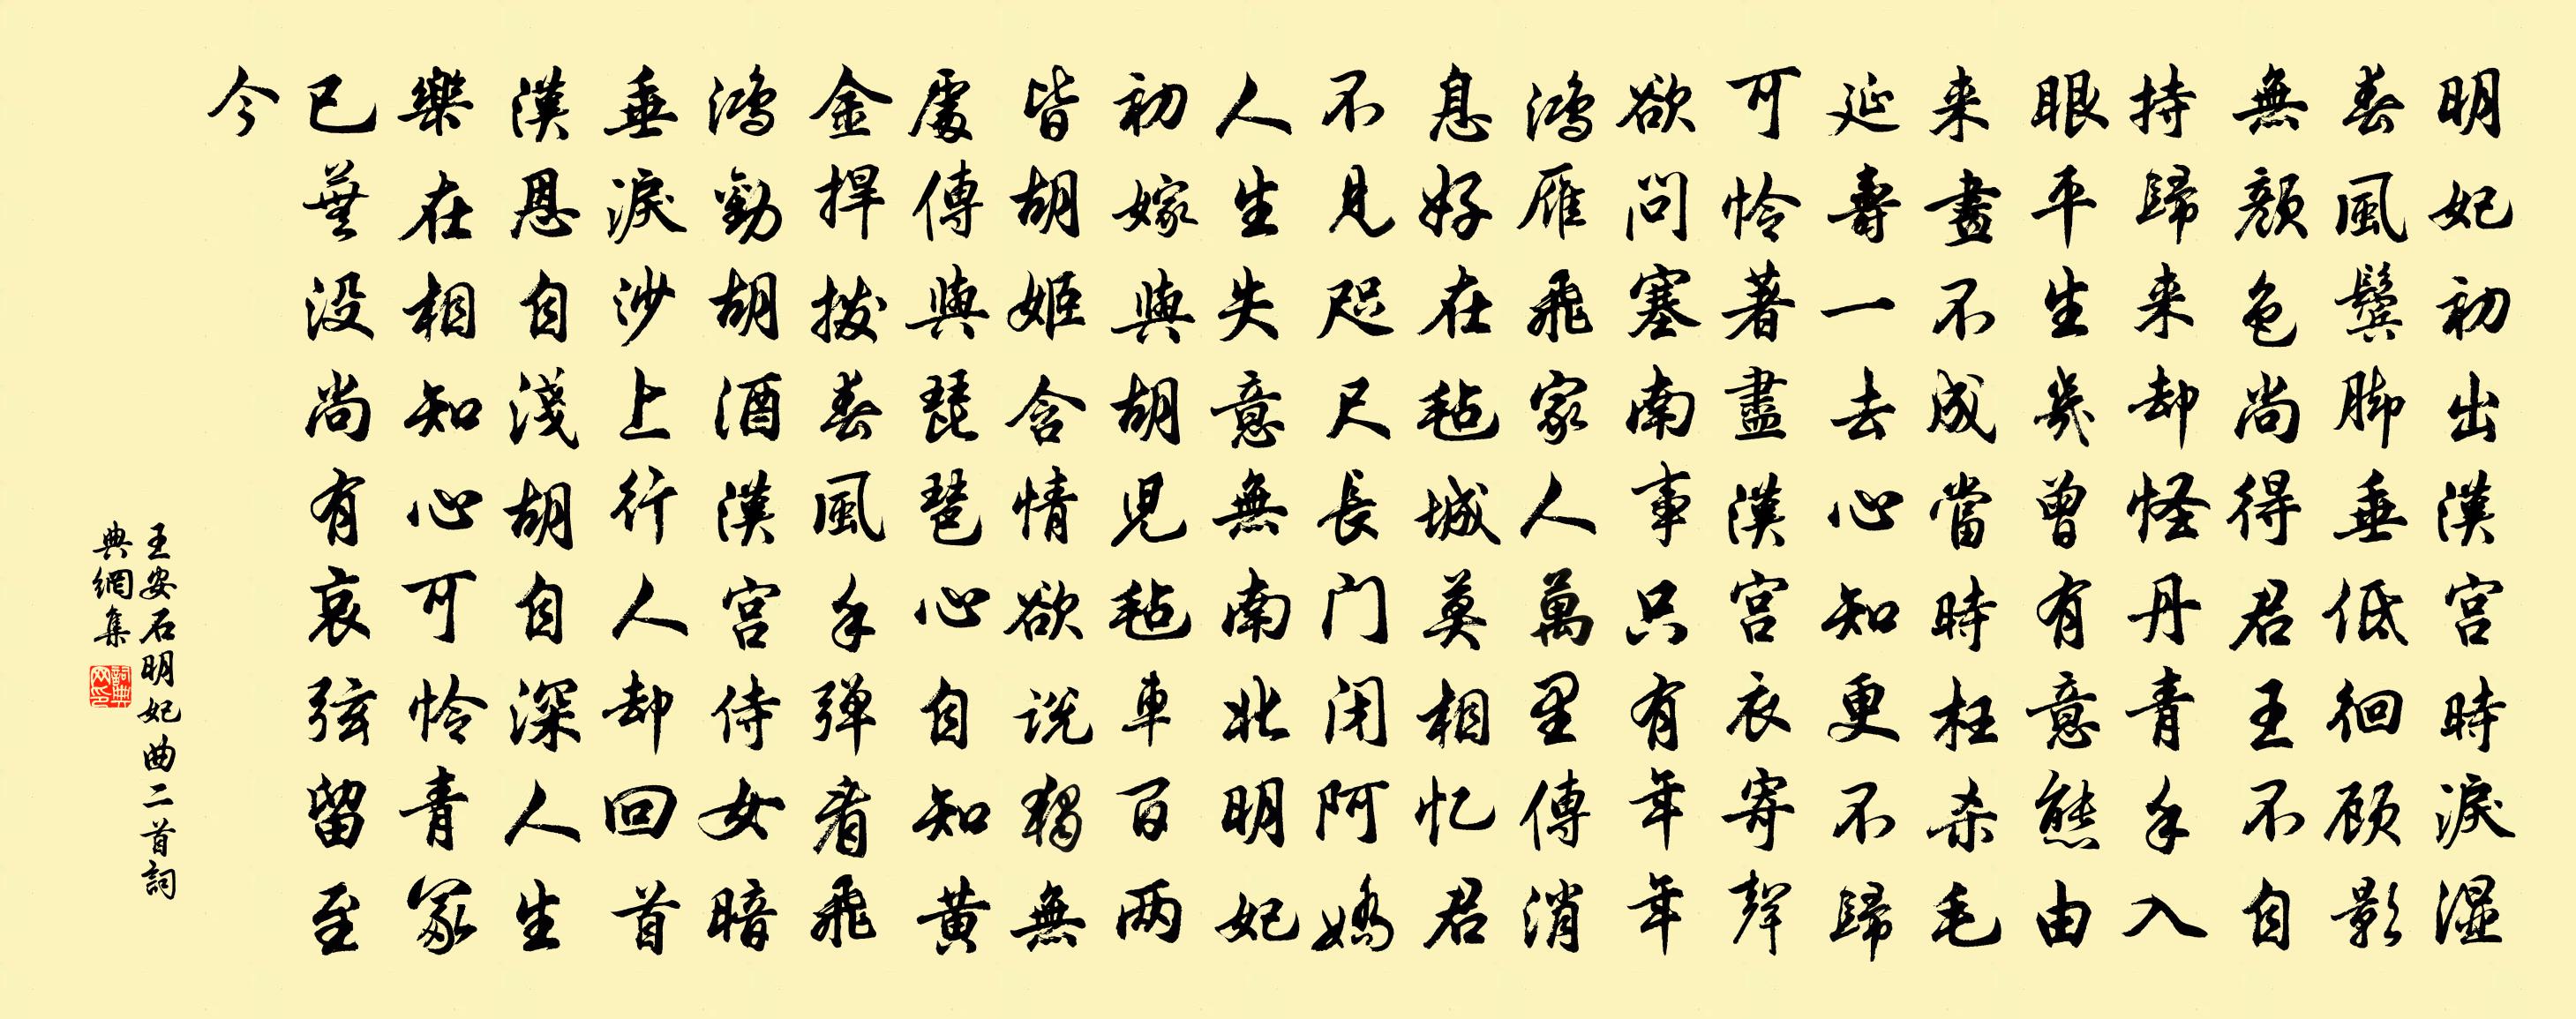 明妃初出漢宫時淚湿
春風鬢脚垂低徊顾影
無颜色尚得君王不自
持歸来却怪丹青手入
眼平生幾曾有意態由
来畫不成當時枉杀毛
延壽一去心知更不歸
可怜著盡漢宫衣寄聲
欲問塞南事只有年年
鴻雁飛家人萬里傳消
息好在毡城莫相忆君
不見咫尺長门闭阿嬌
人生失意無南北明妃
初嫁與胡兒毡車百两
皆胡姬含情欲説獨無
處傳與琵琶心自知黄
金捍撥春風手弹看飛
鴻勸胡酒漢宫侍女暗
垂淚沙上行人却回首
漢恩自淺胡自深人生
樂在相知心可怜青冢
已蕪没尚有哀弦留至
今
王安石明妃曲二首詞
典網集
詞典網印